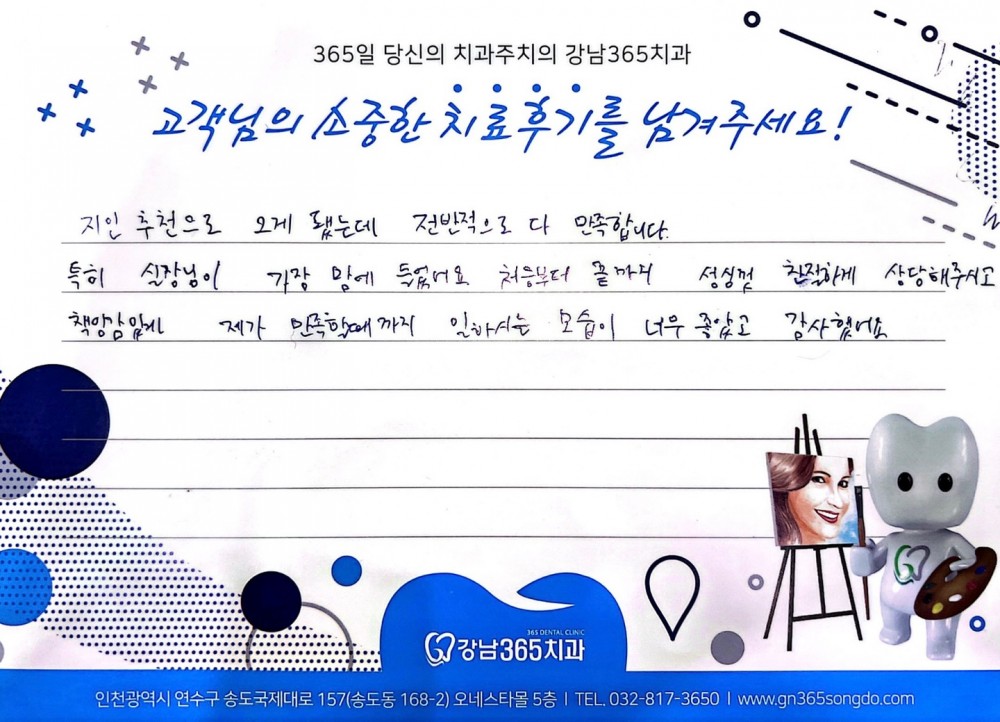 365일 당신의 치과주치의 강남365치과
고객님의 소중한 치료후기를 남겨주세요!
지인 추천으로 오게 됐는데 전반적으로 다 만족합니다.
특히 실장님이 가장 맘에 들었어요 처음부터 끝까지 성심껏 친절하게 상담해주시고
책임감있게 제가 만족할때까지 일하시는 모습이 너무 좋았고 감사했어요
365 DENTAL CLINIC
강남365치과
인천광역시 연수구 송도국제대로 157(송도동 168-2) 오네스타몰 5층 | TEL. 032-817-3650 | www.gn365songdo.com